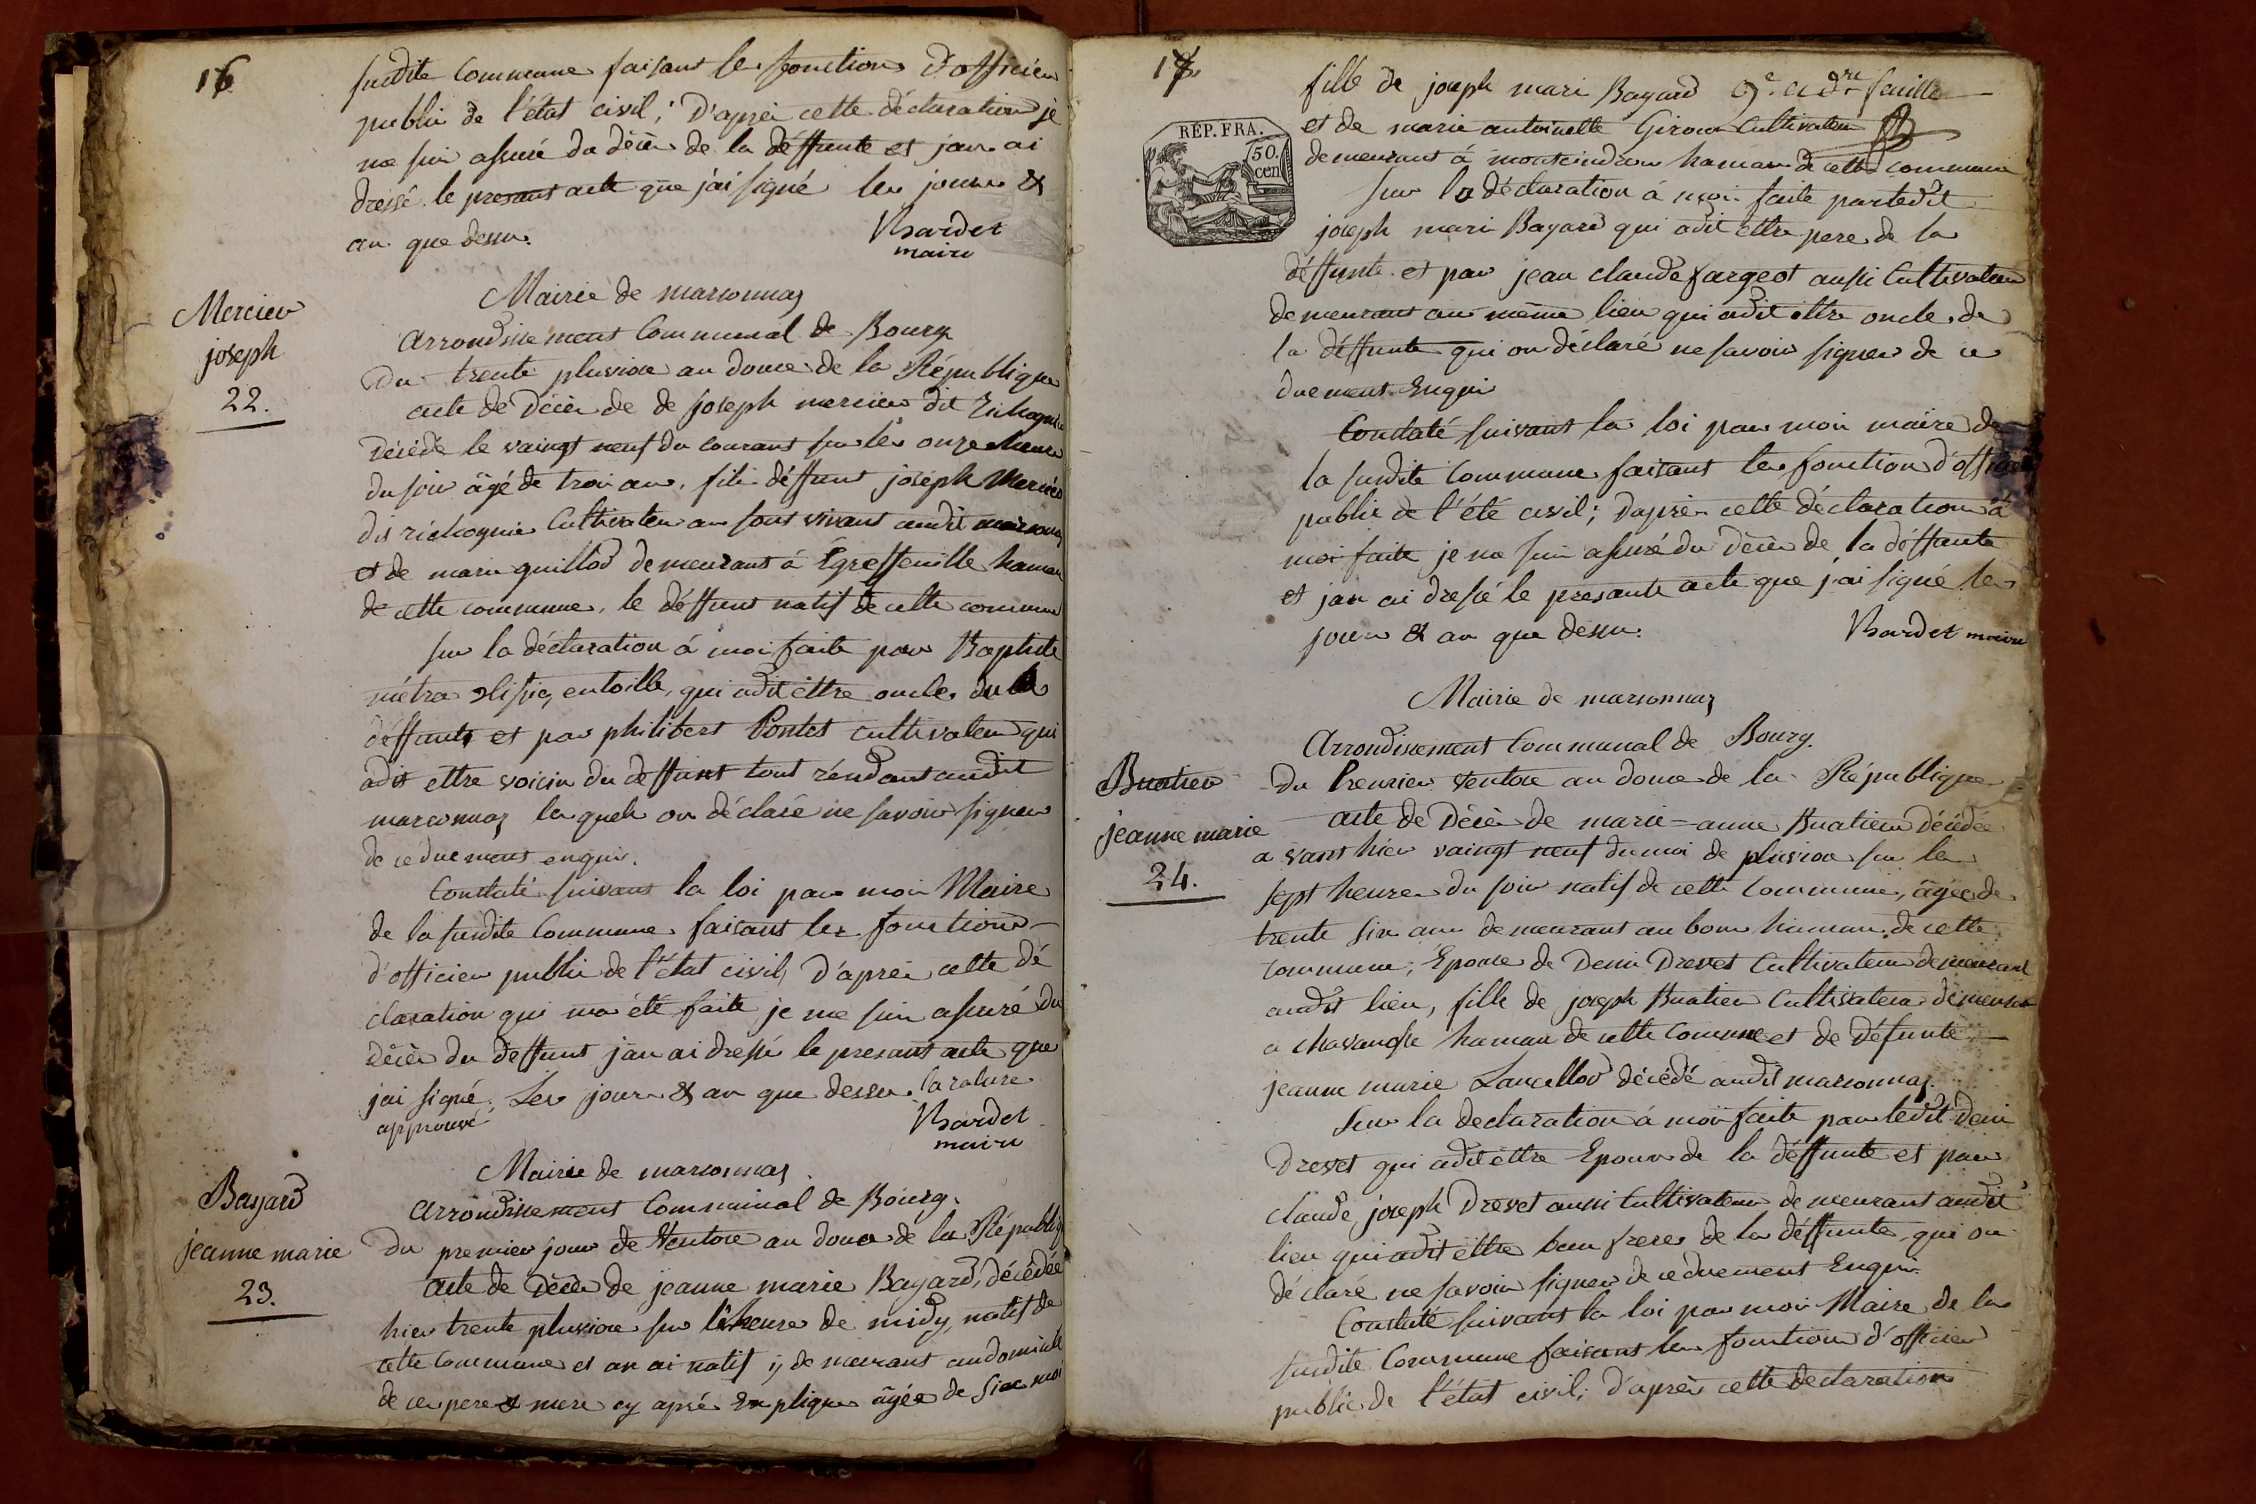 16
susdite Commune faisant les fonctions d'officier
public de l'état civil; D'après cette déclaration je
me suis assuré du décès de la déffunte et j'an ai
dressé le presant acte que j'ai signé les jours &
an que dessus.
Bardet
maire
Mairie de marsonnas
Mercier
joseph
22.
arrondissement Communal de Bourg
Du trente pluviose an douze de la République
acte de Décès de de joseph mercier dit
décédé le vaingt neuf du courant sur les onze heures
du soir âgé de trois ans, fils déffunt joseph Mercier
dit richognie Cultivateur an sont vivant audit marsonnas
et de marie guillod demeurant à Egreffeuille hamau
de cette commune, le déffunt natif de cette commune
sur la déclaration à moi faite par Baptiste
métra entoille, qui a dit éttre oncle du
déffunt et par philibert Pontet cultivateur qui
a dit ettre voicin du deffunt tout résidant audit
marsonnas lesquels on déclaré ne savoir signer
de ce duement enquis.
Constaté suivant la loi par moi Maire
de la susdite Commune faisant les fonctions
d'officier public de l'état civil, D'après cette dé
claration qui m'a été faite je me suis assuré du
décès du deffunt j'an ai dressé le presant acte que
j'ai signé. Les jours & an que dessus. la rature
approuvé
Bardet
maire
Mairie de marsonnas
Bayard
jeanne marie
23.
arrondissement Communal de Bourg.
Du premier jour de Ventose an douze de la Républiq
acte de Décès de jeanne marie Bayard, décédée
hier trente pluviose sur l'heure de midy, natif de
cette commune et an ai natif y demeurant au domicile
de ces pere & mere cy après Expliqués âgée de six moi
17
fille de joseph marie Bayard 9e feuille
RÉP. FRA.
50.
cen
et de marie antoinette Giroux Cultivateur
demeurant à montcindroux hamau de cette commune
sur la déclaration à moi faite par ledit
joseph marie Bayard qui a dit éttre pere de la
déffunte et par jean claude fargeot aussi Cultivateur
demeurant au même lieu qui a dit éttre oncle de
la déffunte qui on déclaré ne savoir signer de ce
duement Enquis
Constaté suivant la loi par moi maire de
la susdite Commune faisant les fonction d'officier
public de l'été civil; D'après cette déclaration à
moi faite je me suis assuré du Décès de la déffunte
et j'an ai dressé le presante acte que j'ai signé les
jours & an que dessus.
Bardet maire
Mairie de marsonnas
Arrondissement Communal de Bourg.
Buatier
jeanne marie
24.
Du Premier Ventose an douze de la République
acte de Décès de marie=anne Buatier décédée
avant hier vaingt neuf du moi de pluviose sur les
sept heures du soir natif de cette Commune, âgée de
trente six ans demeurant au bour hamau de cette
commune; Epouse de Denis Drevet Cultivateur demeurant
audit lieu, fille de joseph Buatier Cultivateur demeurant
a chavanosse hamau de cette Commune et de Défunte
jeanne marie Lancellod décédé audit marsonnas.
sur la declaration à moi faite par ledit Denis
Drevet qui a dit éttre Epoux de la déffunte et par
claude joseph Drevet aussi Cultivateur demeurant audit
lieu qui a dit éttre beau frere de la déffunte, qui on
déclaré ne savoir signer de ce duement Enquis
Constaté suivant la loi par moi Maire de la
susdite Commune faisant les fonction d'officier
public de l'état civil; d'après cette declaration